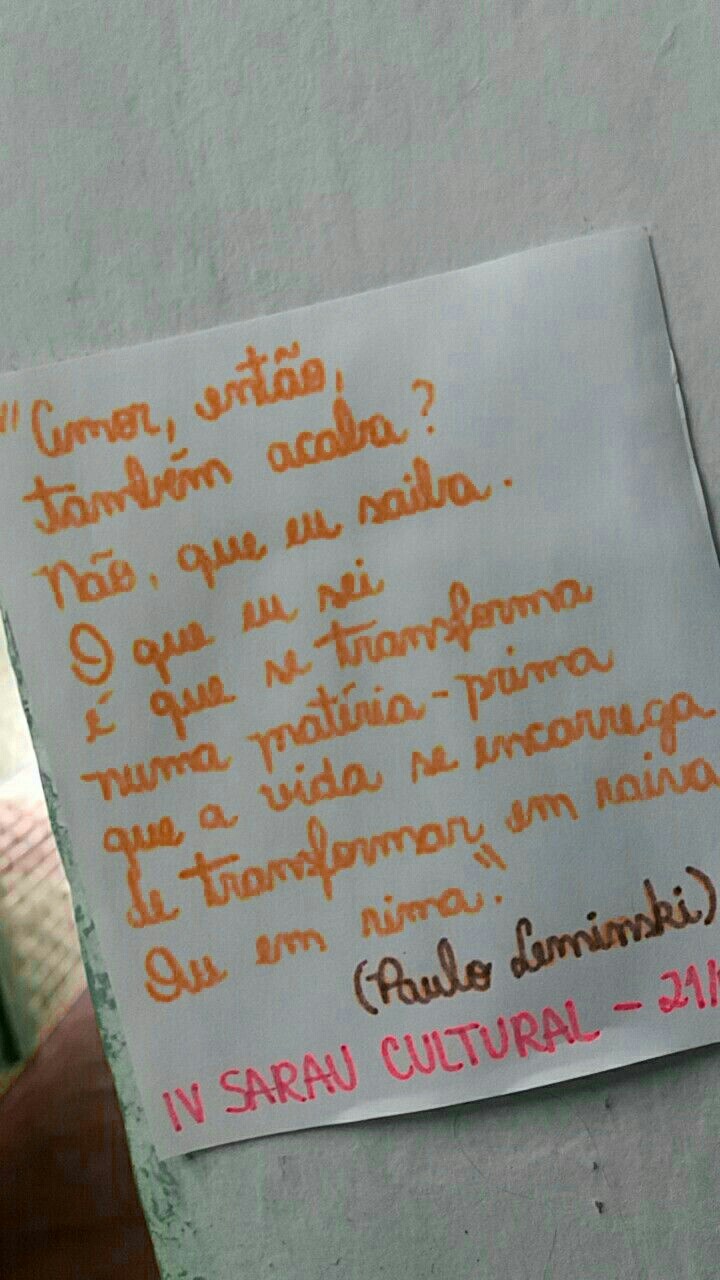 "Amor, então,
também acaba?
Não, que eu saiba.
O que eu sei
é que se transforma
numa matéria-prima
que a vida se encarrega
de transformar em raiva
Ou em rima."
(Paulo Leminski)
IV SARAU CULTURAL - 21/